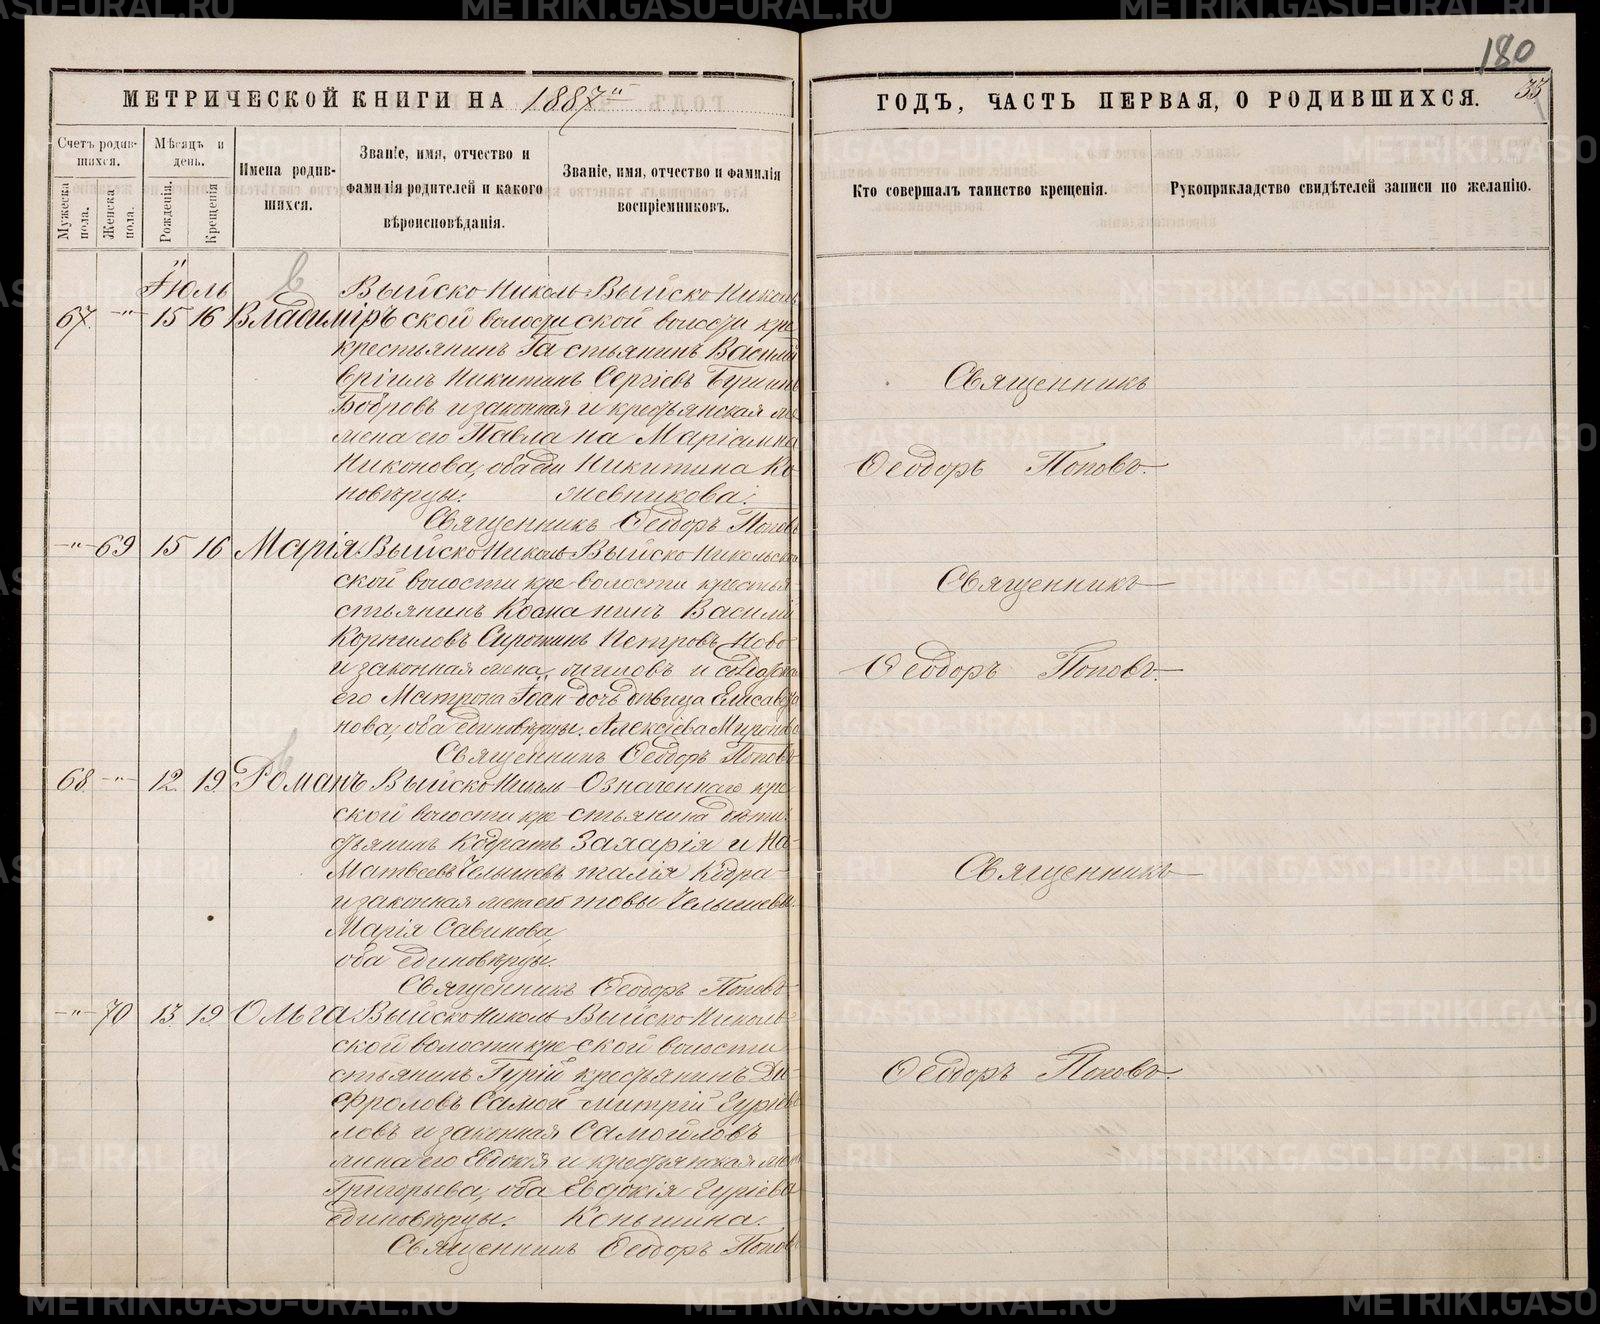 180
МЕТРИЧЕСКОЙ КНИГИ НА 1887
ГОДЪ, ЧАСТЬ ПЕРВАЯ, О РОДИВШИХСЯ.
33
Счетъ родив-
шихся.
Мужеска пола.
Женска пола.
Мѣсяцъ и день.
Рожденія.
Крещенія
Имена родив-
шихся.
Званіе, имя, отчество и
фамилія родителей и какого
вѣроисповѣданія.
Званіе, имя, отчество и фамилія
воспріемниковъ.
Кто совершалъ таинство крещенія.
Рукоприкладство свидѣтелей записи по желанію.
Іюль
67. -"- 15 16 Владиміръ
Выйско Николь-
ской волости
крестьянинъ Га-
вріилъ Никитинъ
Бобровъ и законная
жена его Павла
Никонова, оба еди
новѣрцы.
Выйско Николь
ской волости кре
стьянинъ Василій
Сергіевъ
и крестьянская же
на Маріамна
Никитина Ко
жевникова.
Священникъ Ѳеодоръ Поповъ
Священникъ
Ѳеодоръ Поповъ.
-"- 69 15 16 Марія
Выйско Николь-
ской волости кре
стьянинъ Козма
Корниловъ Сиротинъ
и законная жена
его Матрона Іоан-
нова, оба единовѣрцы.
Выйско Никольской
волости крестья
нинъ Василій
Петровъ Ново
жиловъ и солдатская
дочь дѣвица Елисавета
Алексіева Миронова
Священникъ Ѳеодоръ Поповъ
Священникъ
Ѳеодоръ Поповъ.
68. -"- 12. 19. Романъ
Выйско Николь-
ской волости кре-
стьянинъ Кодратъ
Матвѣевъ Челышевъ
и законная жена его
Марія Савинова,
оба единовѣрцы.
Означеннаго кре-
стьянина дѣти:
Захарія и На-
талія Кодра-
товы Челышевы.
Священникъ Ѳеодоръ Поповъ
Священникъ
-"- 70 13. 19. Ольга
Выйско Николь-
ской волости кре-
стьянинъ Гурій
Фроловъ Самой
ловъ и законная
жена его Евдокія
Григорьева, оба
единовѣрцы.
Выйско Николь-
ской волости
крестьянинъ Ди-
митрій Гуріевъ
Самойловъ
и крестьянская жена
Евдокія Гуріева
Коньшина.
Священникъ Ѳеодоръ Поповъ
Ѳеодоръ Поповъ.
METRIKI.GASO-URAL.RU